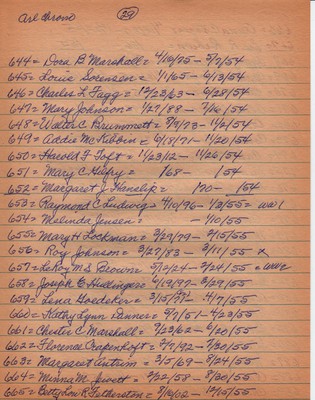 29
644= Dora B Marshall= 4/10/75- 5/7/54
645= Louise Sorensen= 1/1/65- 6/13/54
646= Charles L. Fagg= 12/23/63- 6/28/54
647= Mary Johnson= 1/27/88- 7/26/54
648= Walter C. Brummett= 8/9/73- 11/2/54
649= Addie McKibbin= 6/18/71- 11/20/54
650= Harold F Toft= 1/23/12- 11/26/54
651= Mary C. 168- /54
652= Margaret J. 190- /54
653= Raymond C Ludwig= 4/10/96- 1/2/55= WW1
654= Melinda Jensen= - 1/10/55
655= Mary H. Lockman= 2/29/79- 2/15/55
656= Roy Johnson= 3/27/83- 3/11/55 x
657= LeRoy M.S. Brown= 5/20/24- 3/24/55= WW2
658= Joseph C 6/19/97- 3/29/55
659= Lena Goedeker= 3/15/77- 4/7/55
660= Kathy Lynn Dinner= 9/7/51- 4/23/55
661= Chester C Marshall= 7/23/62- 6/20/55
662= Florence 2/7/92- 7/30/55
663= Margaret Antrim= 3/5/69- 8/24/55
664= Minna M. Jewett= 2/22/58- 8/30/55
665= Betty Lou R. Fetherston= 12/15/55